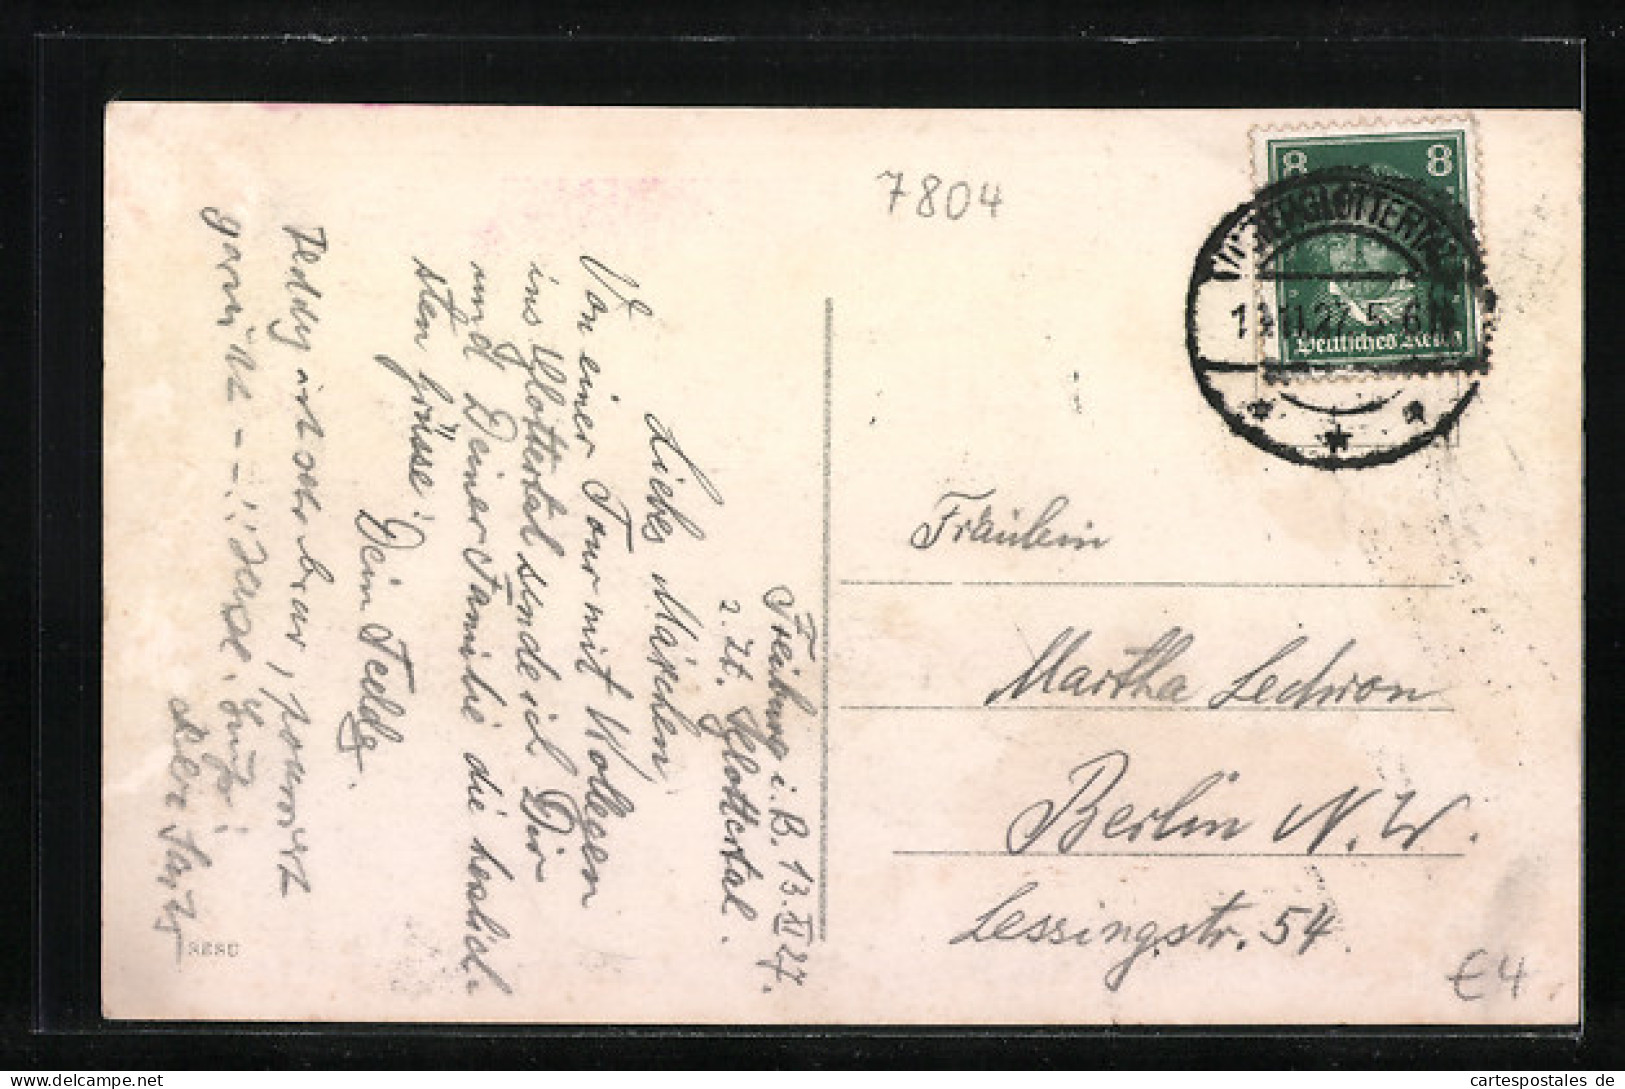 7804
8 8
UNTERGLOTTERTAL
11.27.5-6N
Deutsches Reich
Freiburg i. B. 13. XI 27.
z. Zt. Glottertal.
Liebes Märchen,
Von einer Tour mit Kollegen
ins Glottertal sende ich Dir
und Deiner Familie die herzlich-
sten Grüsse!
Dein Teddy.
Teddy ist sehr brav,
Fräulein
Martha Ledwon
Berlin N.W.
Lessingstr. 54
€4
cartespostales de